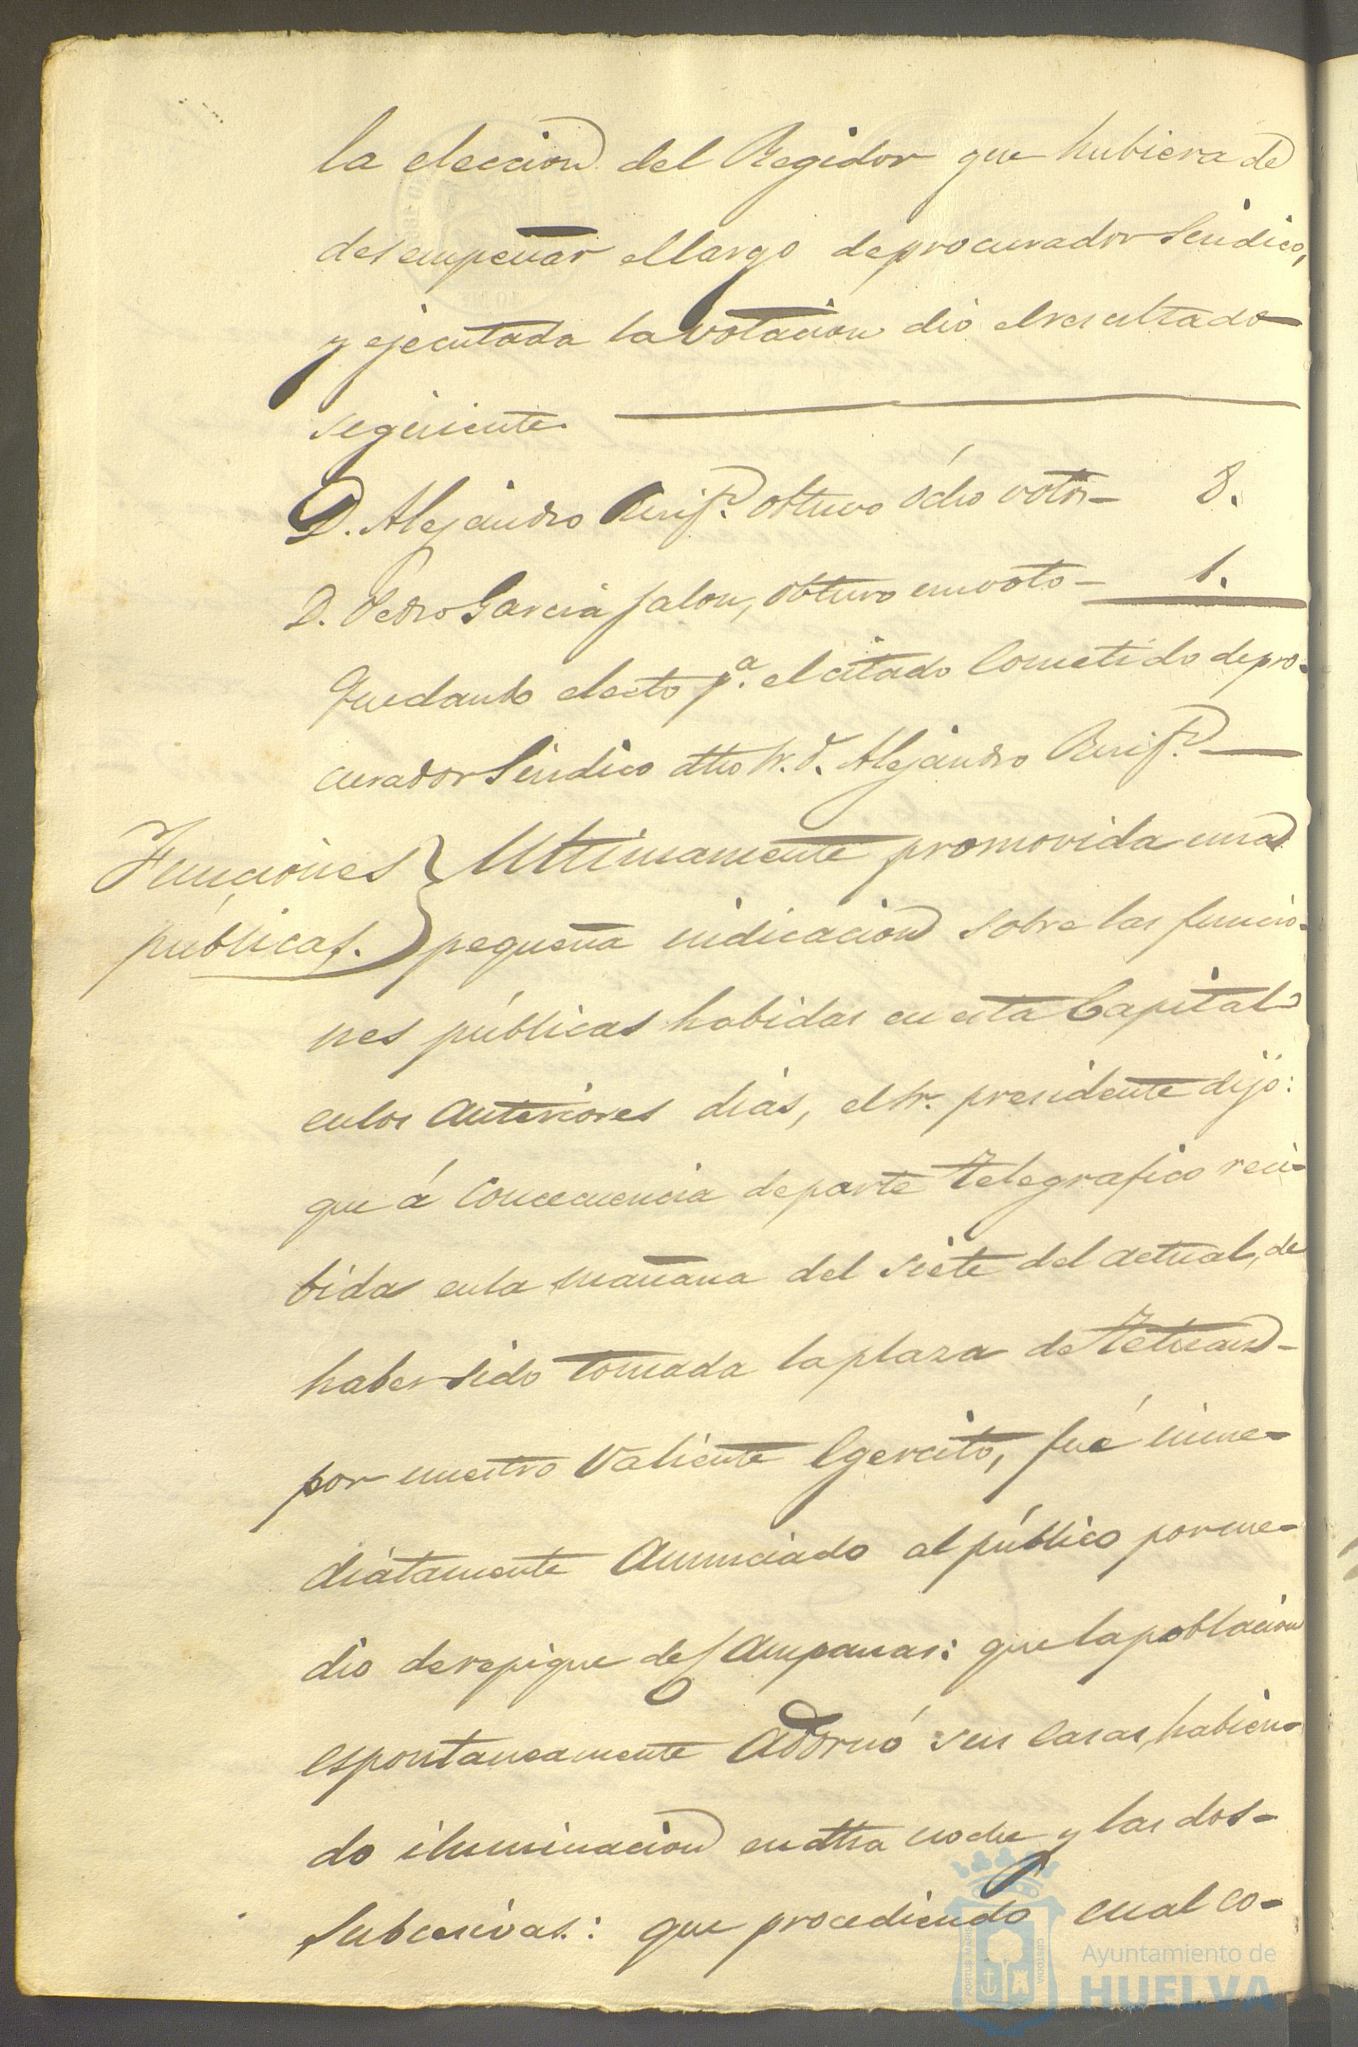 la eleccion del Regidor que hubiera de
desempeñar el Cargo de procurador Sindico,
y ejecutada la votacion dió el resultado
seguiente.
D. Alejandro obtuvo ócho votos - 8.
D. Pedro Garcia Jalon, obtuvo un voto - 1.
Quedando electo pª. el citado Cometido de pro-
curador Sindico dho Sr. D. Alejandro
Funciones públicas.
Ultimamente promovida una
pequeña indicacion sobre las funcio-
nes públicas habidas en esta Capital
en los anteriores dias, el Sr. presidente dijo:
que á concecuencia de parte telegrafico reci-
bida en la mañana del siete del actual, de
haber sido tomada la plaza de Tetuan-
por nuestro Valiente Egercito, fué inme-
diatamente anunciado al público por me-
dio de repique de Campanas: que la poblacion
espontaneamente adornó sus Casas, habien-
do iluminacion en dha noche y las dos-
Subcesivas: que procediendo cual co-
Ayuntamiento de
HUELVA